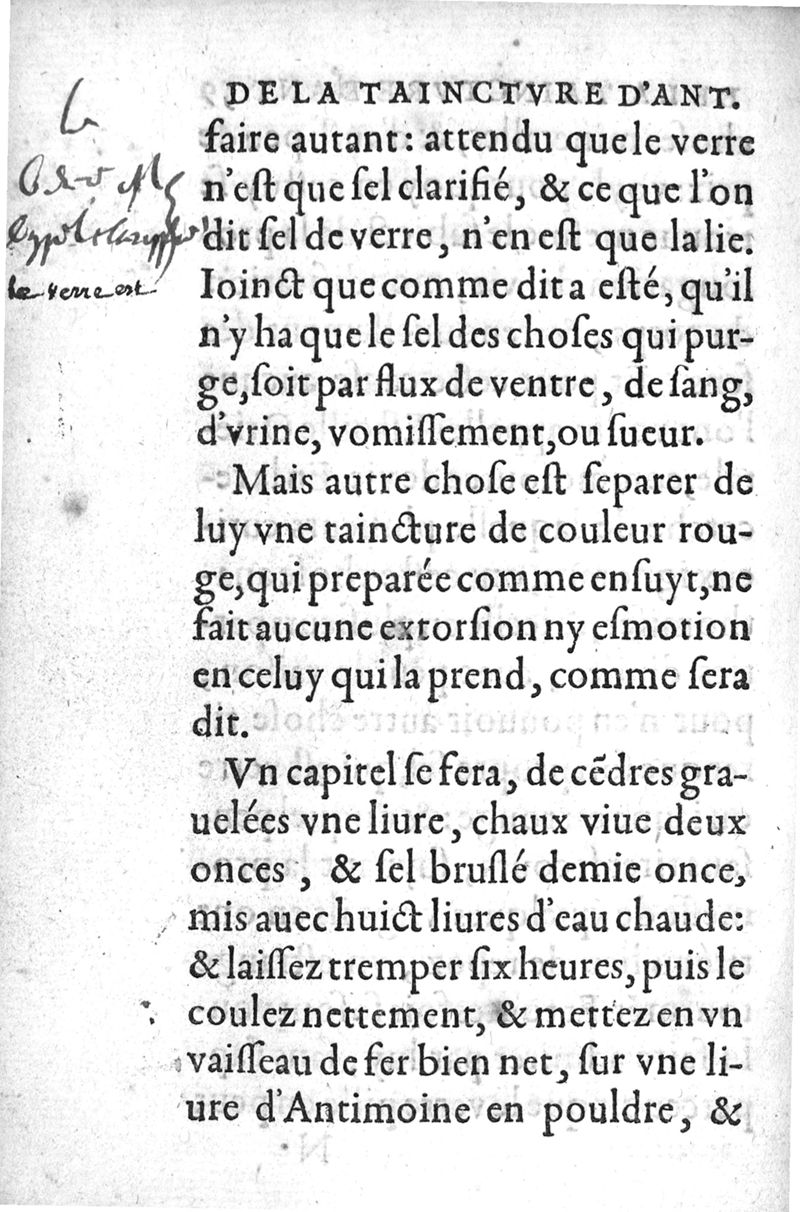 DE LA TAINCTVRE D'ANT.
faire autant: attendu que le verre
n'eſt que ſel clarifié, & ce que l'on
dit ſel de verre, n'en eſt que la lie.
le verre est
Ioinct que comme dit a eſté, qu'il
n'y ha que le ſel des choſes qui pur-
ge, ſoit par flux de ventre, de ſang,
d'vrine, vomiſſement, ou ſueur.
Mais autre choſe eſt ſeparer de
luy vne taincture de couleur rou-
ge, qui preparée comme enſuyt, ne
fait aucune extorſion ny eſmotion
en celuy qui la prend, comme ſera
dit.
Vn capitel ſe fera, de cẽdres gra-
uelées vne liure, chaux viue deux
onces, & ſel bruſlé demie once,
mis auec huict liures d'eau chaude:
& laiſſez tremper ſix heures, puis le
coulez nettement, & mettez en vn
vaiſſeau de fer bien net, ſur vne li-
ure d'Antimoine en pouldre, &